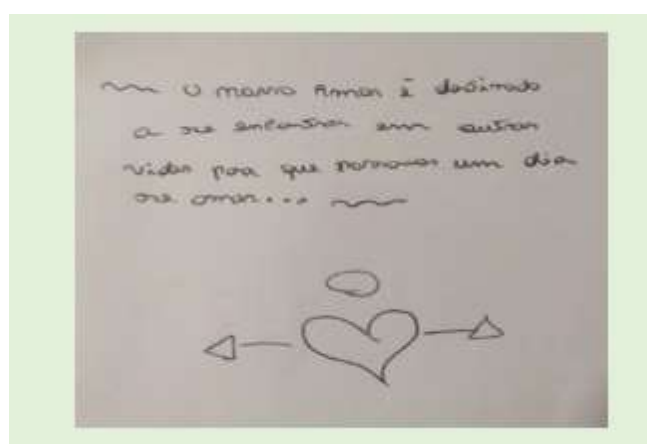 O nosso Amor é destinado
a se encontrar em outras
vidas para que possamos um dia
se amar...